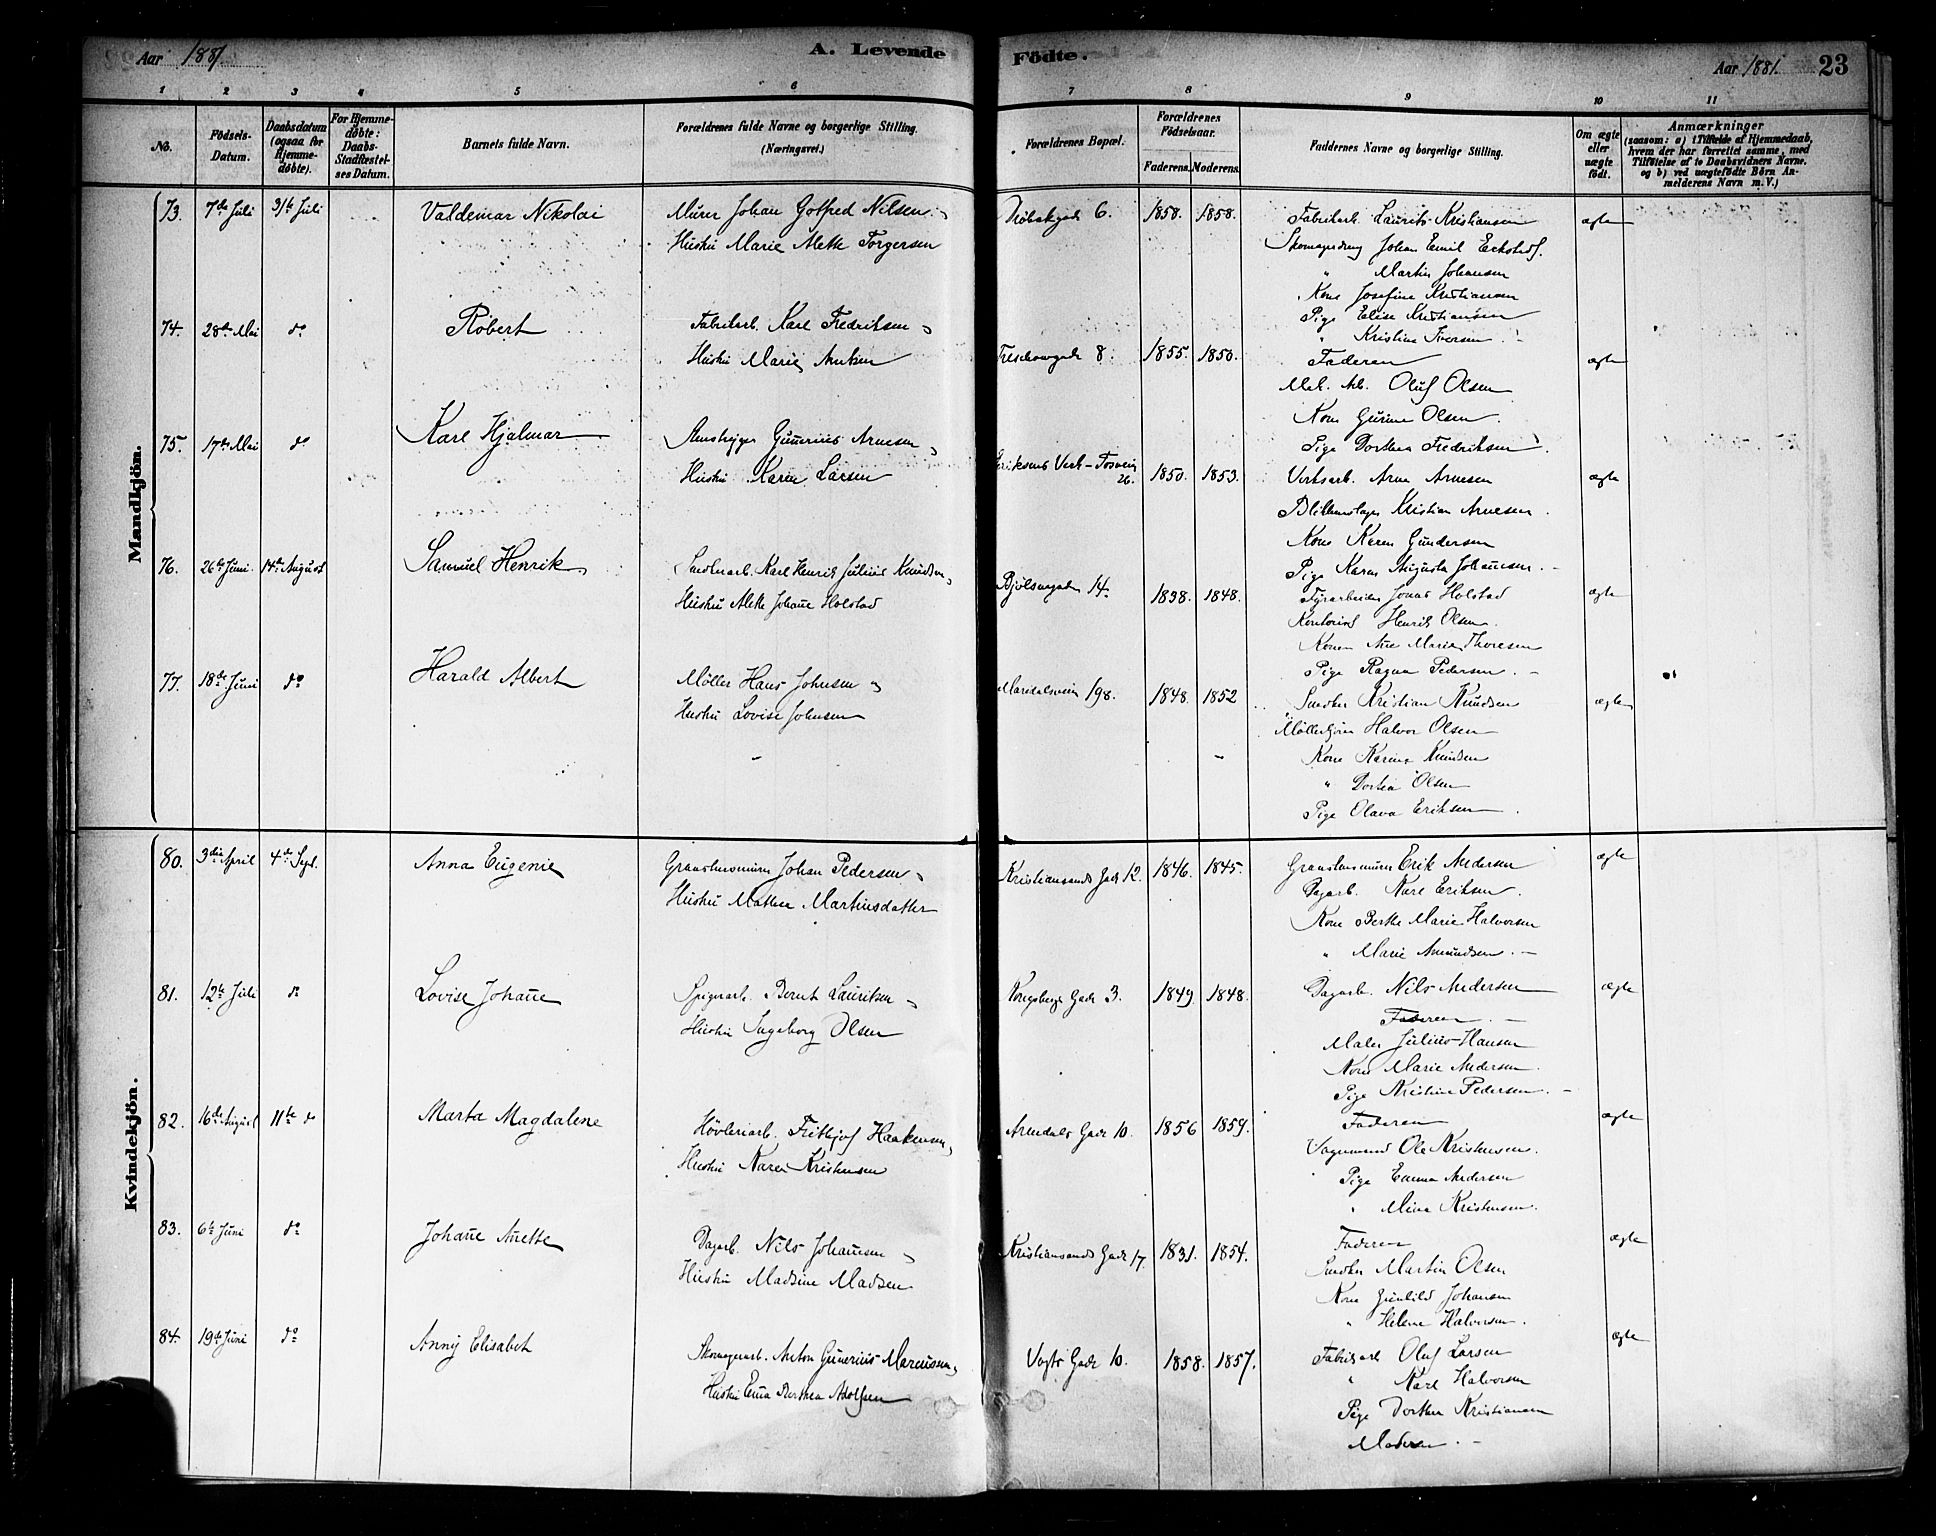 Aar 1881. A. Levende Födte. Aar 1881. 23
1 2 3 4 5 6 7 8 9 10 11
No. Födsels-Datum. Daabsdatum (ogsaa for Hjemmedøbte). For Hjemmedøbte: Daabs-Stadfæstelses Datum. Barnets fulde Navn. Forældrenes fulde Navne og borgerlige Stilling. (Næringsvei.) Forældrenes Bopæl. Forældrenes Födselsaar. Faderens. Moderens. Faddernes Navne og borgerlige Stilling. Om ægte eller uægte födt. Anmærkninger (saasom: a) i Tilfælde af Hjemmedaab, hvem der har forrettet samme, med Tilföielse af to Daabsvidners Navne. og b) ved uægtefödte Börn Anmelderens Navn m.V.)
Mandkjön.
73. 7de Juli 31te Juli Valdemar Nikolai Murer Johan Gotfred Nilsen Drøbakgade 6. 1858. 1858. Fabrikarb. Laurits Kristiansen ægte
Hustru Marie Alette Torgersen Johan Emil
" Martin Johansen
Kone Josefine Kristiansen
Pige Elise Kristiansen
" Kristine Iversen
74. 28de Mai do Robert Fabrikarb. Karl Fredriksen
Hustru Marie Treschowgade 8. 1855. 1850. Faderen ægte
Mek. Arb. Oluf Olsen
Kone Gurine Olsen
75. 17de Mai do Karl Hjalmar Gunerius Arnesen Pige Dorthea Fredriksen
Hustru Karen Larsen 26. 1850. 1853. Verksarb. Arne Arnesen ægte
Blikkenslager Kristian Arnesen
Kone Karen Gundersen
76. 26de Juni 14de August Samuel Henrik Karl Henrik Julius Knudsen Pige Karen Augusta Johannesen
Hustru Alette Johanne Holstad Bjølsengaden 14. 1838. 1848. Fyrarbeider Jonas Holstad ægte
Kontorist Henrik Olsen
Konen Ane Marie Thoresen
77. 18de Juni do Harald Albert Møller Hans Johnsen Pige Ragna Pedersen
Hustru Lovise Johnsen Maridalsveien 198. 1848. 1852 Snedker Kristian Knudsen ægte
Halvor Olsen
Kone Karina Knudsen
" Dorthea Olsen
Pige Olava Eriksen
Kvindekjön.
80. 3die April 4de Sept. Anna Eugenie Johan Pedersen Kristiansands Gade 12. 1846. 1845. Erik Andersen ægte
Hustru Mathea Martinsdatter Dagarb. Karl Eriksen
Kone Berthe Marie Halvorsen
" Marie Amundsen
81. 12te Juli do Lovise Johanne Spigerarb. Bernt Lauritsen Kongsbergs Gade 3. 1849. 1848. Dagarb. Nils Andersen ægte
Hustru Ingeborg Olsen Faderen
Maler Julius Hansen
Kone Marie Andersen
Pige Kristine Pedersen
82. 16de August 11te do Marta Magdalene Høvleriarb. Fritjof Haakensen Arendals Gade 10. 1856 1859. Faderen ægte
Hustru Karen Kristensen Vognmand Ole Kristensen
Pige Emma Andersen
" Mina Kristensen
83. 6te Juni do Johanne Anette Dagarb. Nils Johannesen Kristiansands Gade 17. 1831. 1854. Faderen ægte
Hustru Madsine Madsen Snedker Martin Olsen
Kone Gunhild Johansen
" Helene Halvorsen
84. 19de Juni do Anny Elisabet Skomagerarb. Anton Gunerius Marcussen Vogts Gade 10. 1858. 1857. Fabrikarb Oluf Larsen ægte
Hustru Emma Berthea Adolfsen " Karl Halvorsen
Pige Dorthea Kristiansen
Moderen